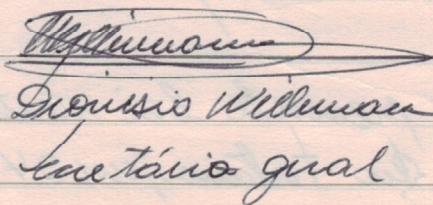 Dionisio Willemann
Secretário geral